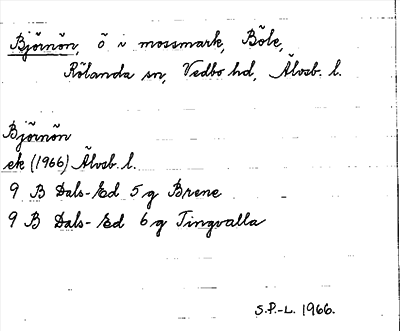 Björnön, ö i mossmark, Böle,
Rölanda sn, Vedbo hd, Älvsb. l.
Björnön
ek (1966) Älvsb. l.
9 B Dals-Ed 5 g Brene
9 B Dals-Ed 6 g Tingvalla
S.P.-L. 1966.